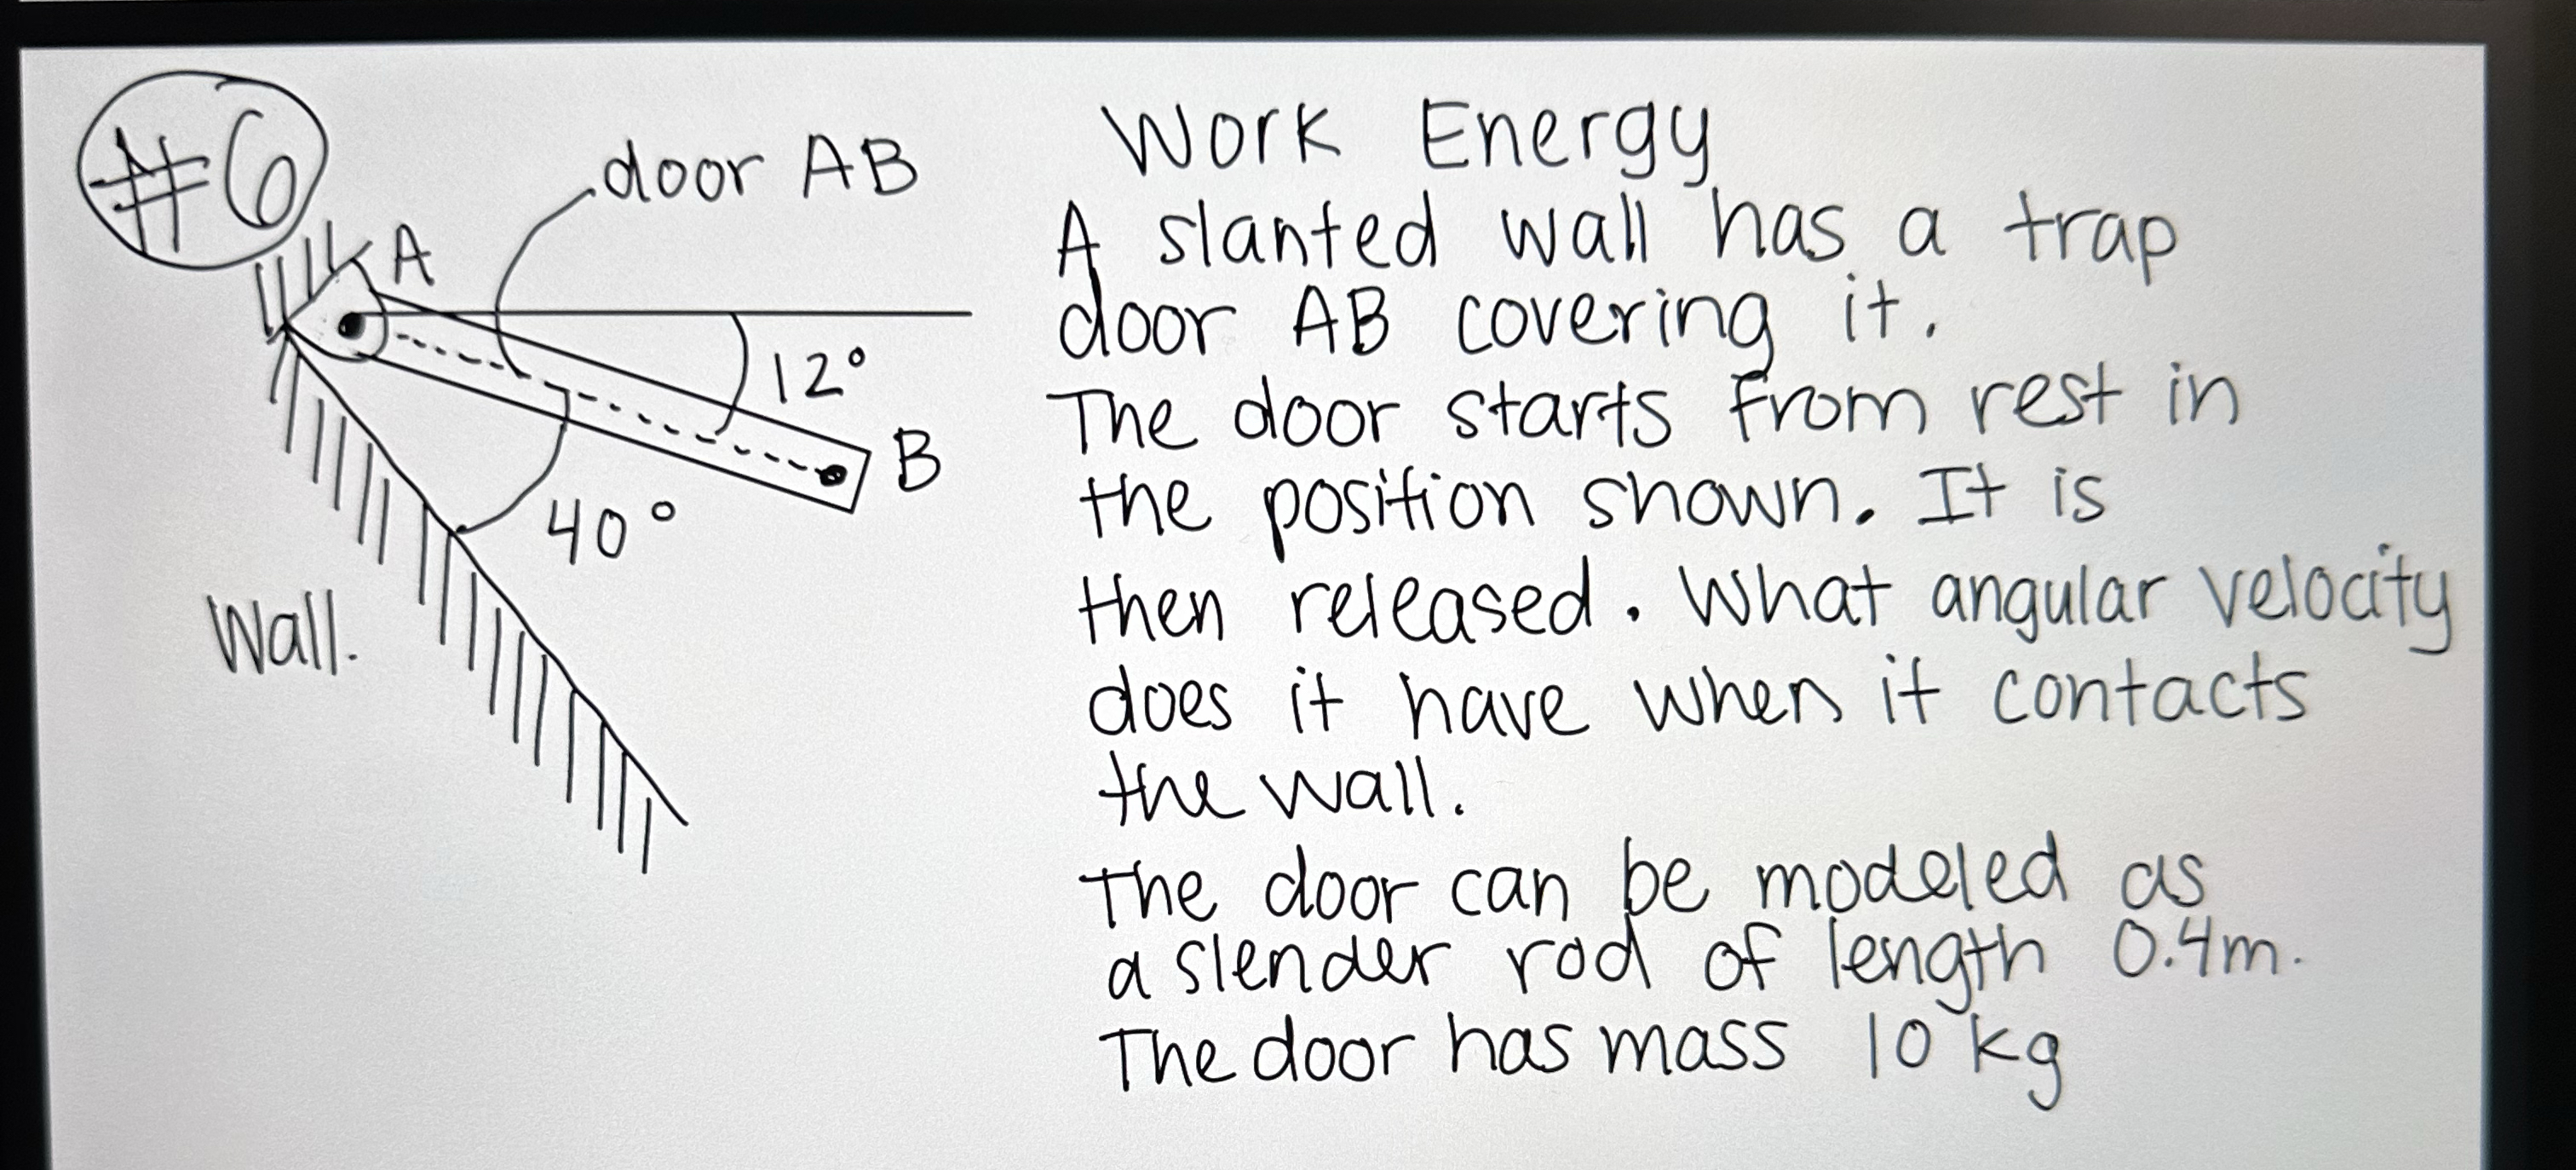 #6
door AB
A
12°
B
40°
Wall.
Work Energy
A slanted wall has a trap
door AB covering it.
The door starts from rest in
the position shown. It is
then released. What angular velocity
does it have when it contacts
the wall.
The door can be modeled as
a slender rod of length 0.4m.
The door has mass 10 kg